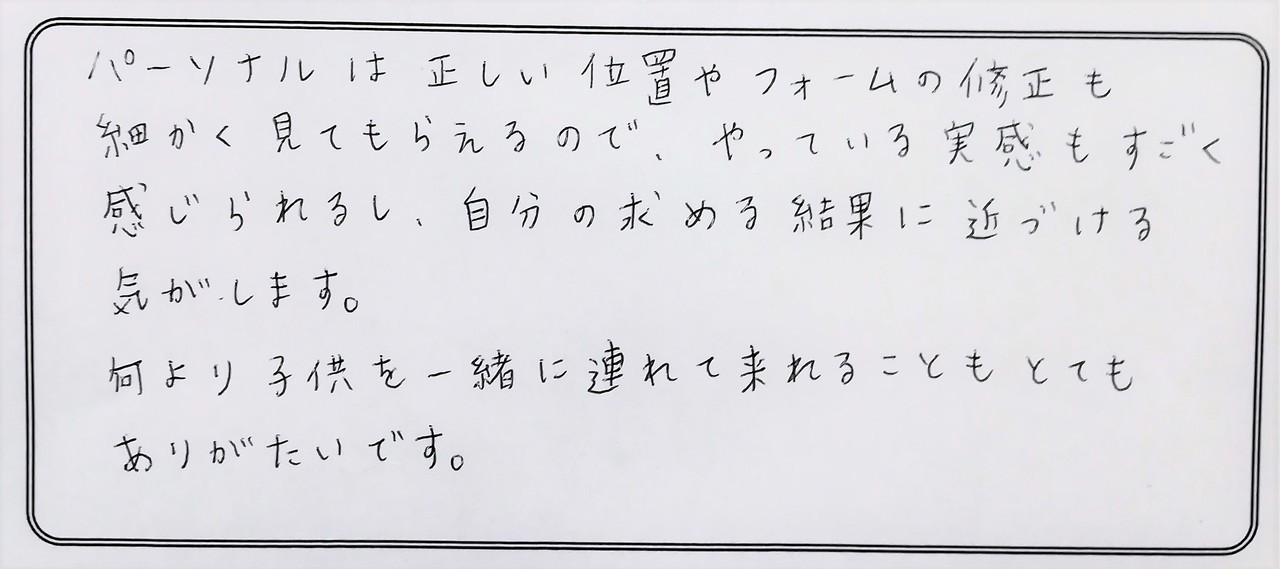 パーソナルは正しい位置やフォームの修正も
細かく見てもらえるので、やっている実感もすごく
感じられるし、自分の求める結果に近づける
気がします。
何より子供を一緒に連れて来れることもとても
ありがたいです。